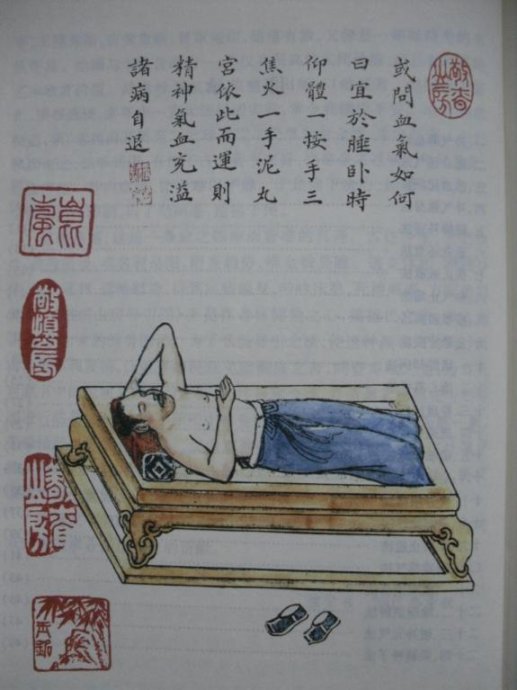 或問血氣如何
曰宜於睡卧時
仰體一按手三
焦火一手泥丸
宮依此而運則
精神氣血充溢
諸病自退
敬慎山房